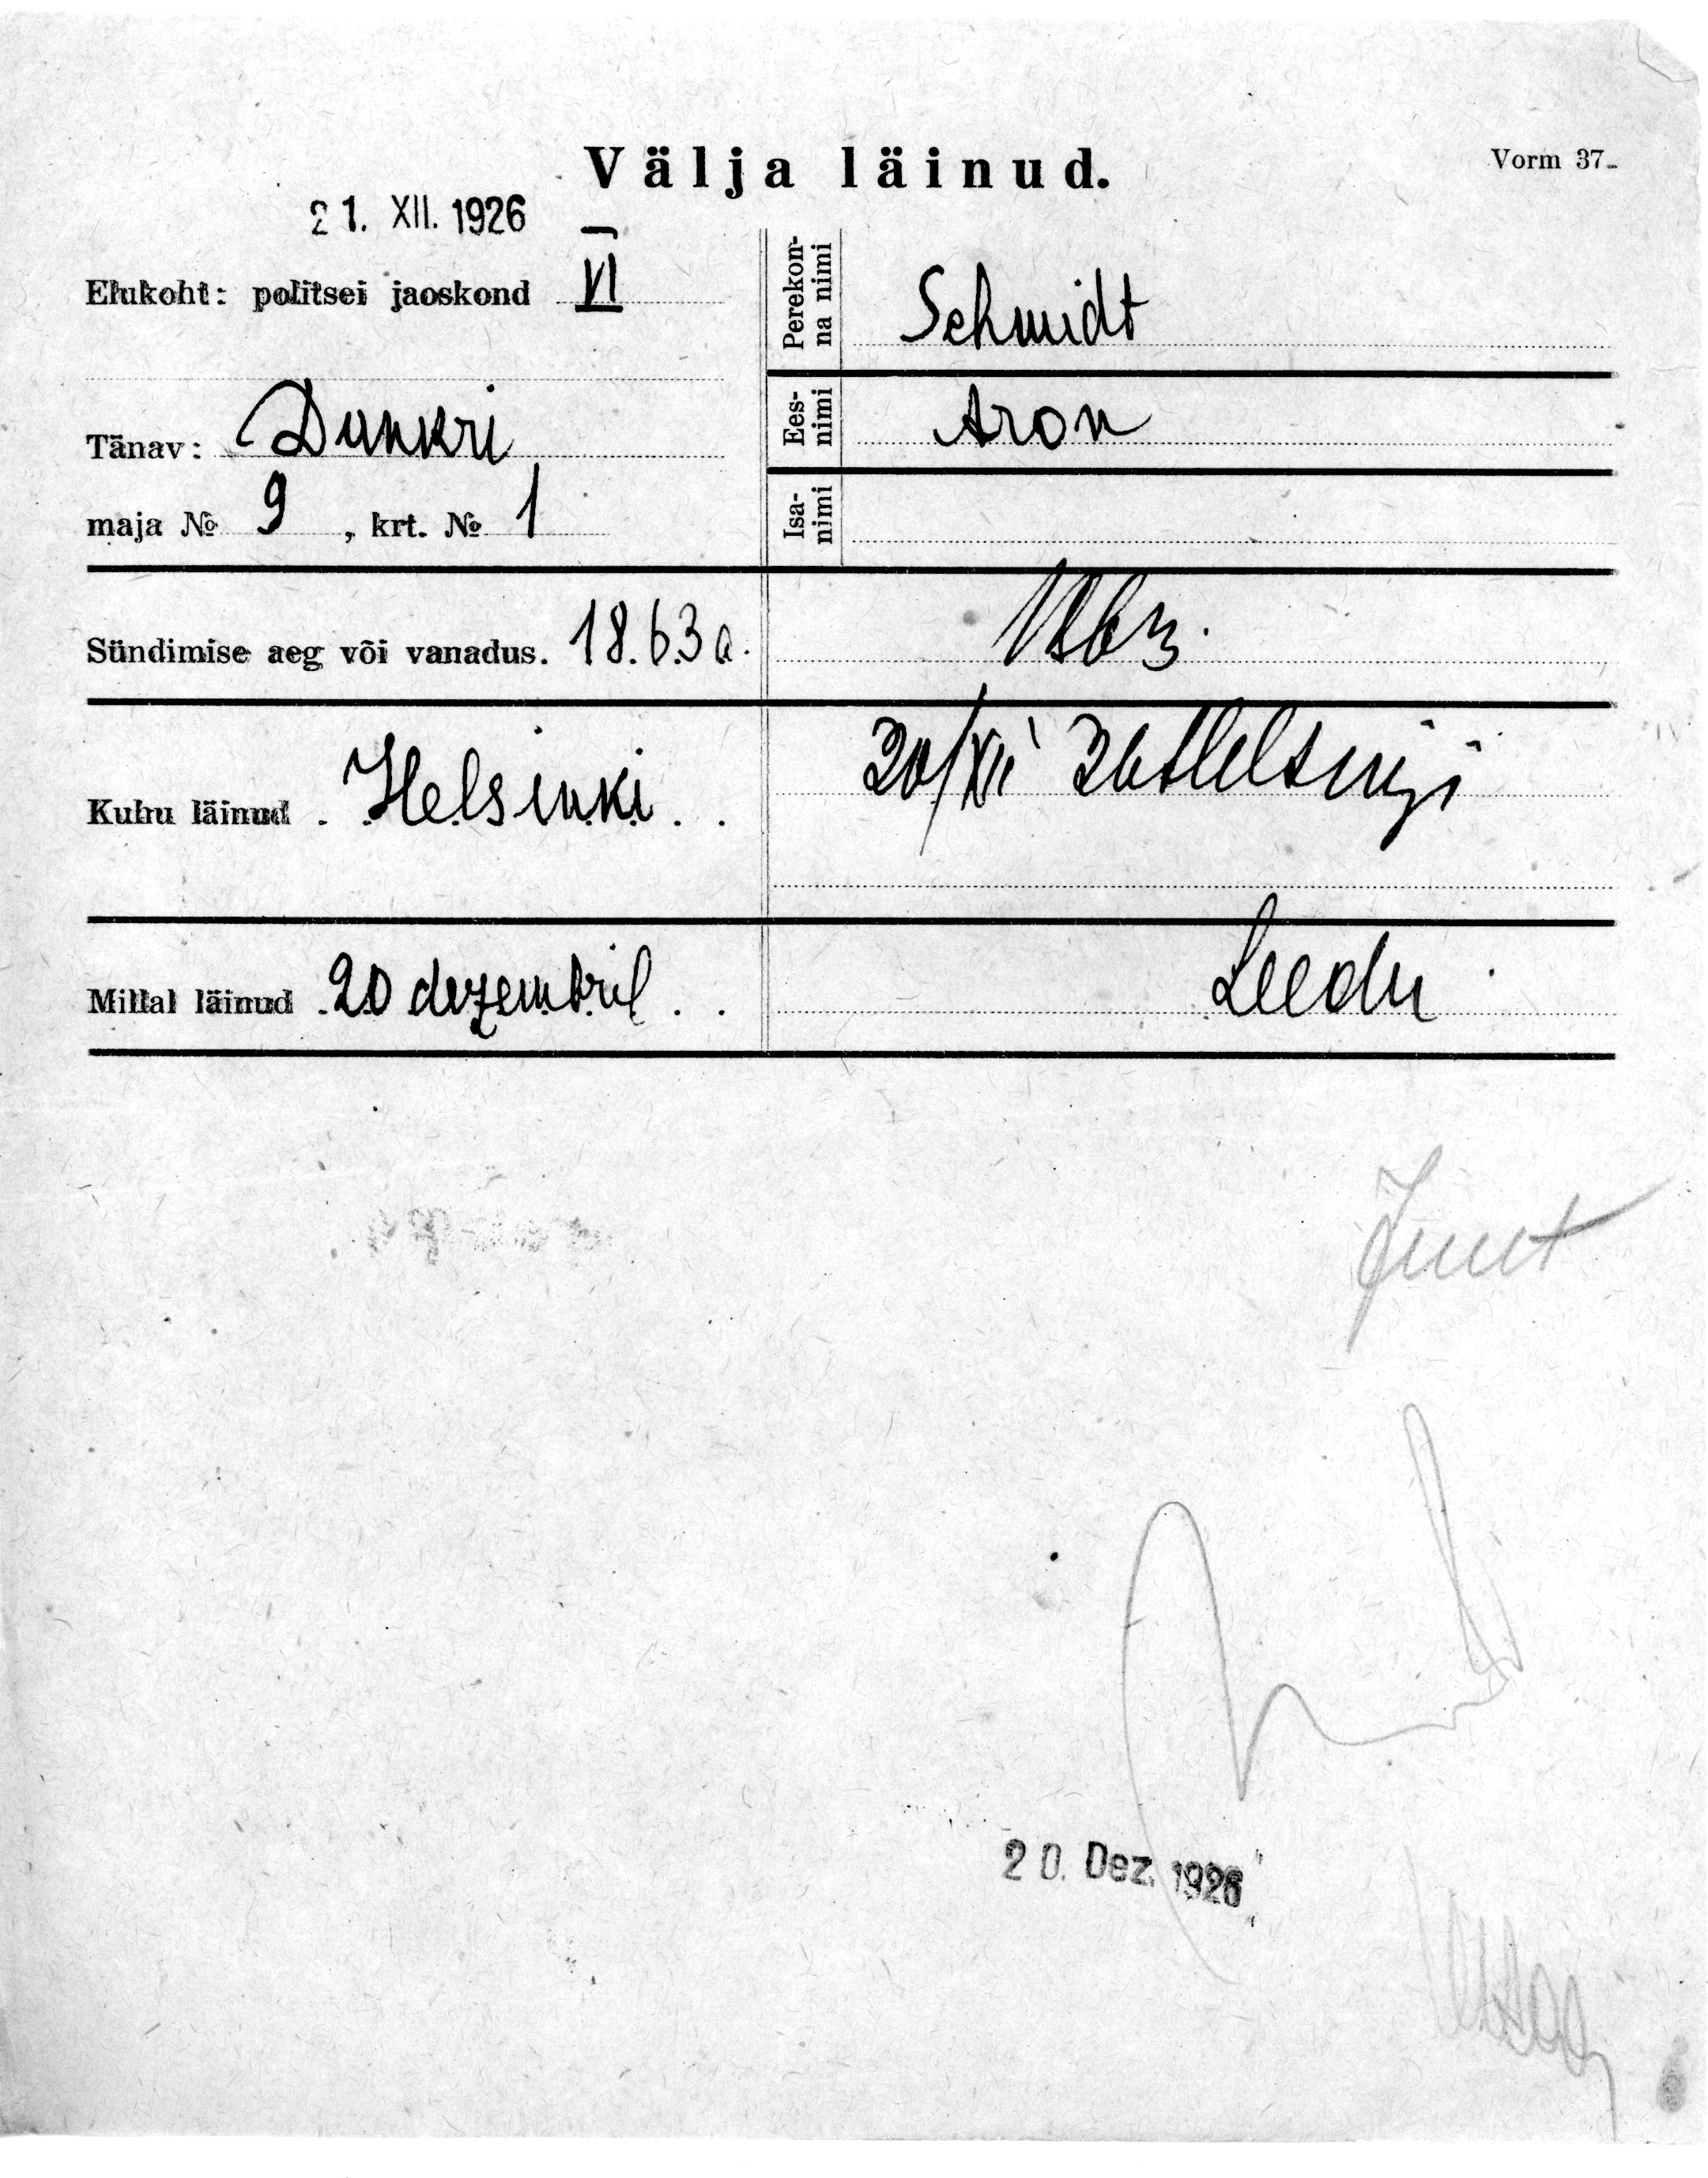 Välja läinud.
Vorm 37
21. XII. 1926
Elukoht: politsei jaoskond VI
Tänav: Dunkri
maja № 9, krt. № 1
Perekonna nimi Schmidt
Eesnimi Aron
Isanimi
Sündimise aeg või vanadus. 18.63 a.
1863.
Kuhu läinud Helsinki
20/XII 26 Helsingi
Millal läinud 20 dezembril
Leedu
Juut
20. Dez. 1926